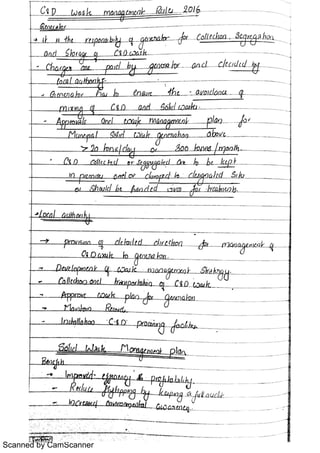 C&D Waste management Rules 2016
Generator
→ it is the responsibility of generator for Collection, Segregation
and Storage of C&D waste.
- Charges are paid by generator and decided by
local authority.
- Generator has to ensure the avoidance of
mixing of C&D and Solid waste.
- Approvals and waste management plan for
Municipal Solid Waste generation above
> 20 tons/day or 300 tonne/month.
- C&D collected or segregated are to be kept
in premises and or dumped to designated Site
or should be handed over for treatments.
→ Local authority
→ provision of detailed direction for management of
C&D waste to generator.
- Development of waste management Strategy.
- Collection and transportation of C&D waste.
- Approve waste plan for generation
→ Maintain Record.
- Installation C&D processing facilities
Solid Waste Management plan
Benefits
→ Improved efficiency & profitability.
- Reduce by keeping a
- Increased environmental awareness
Scanned by CamScanner